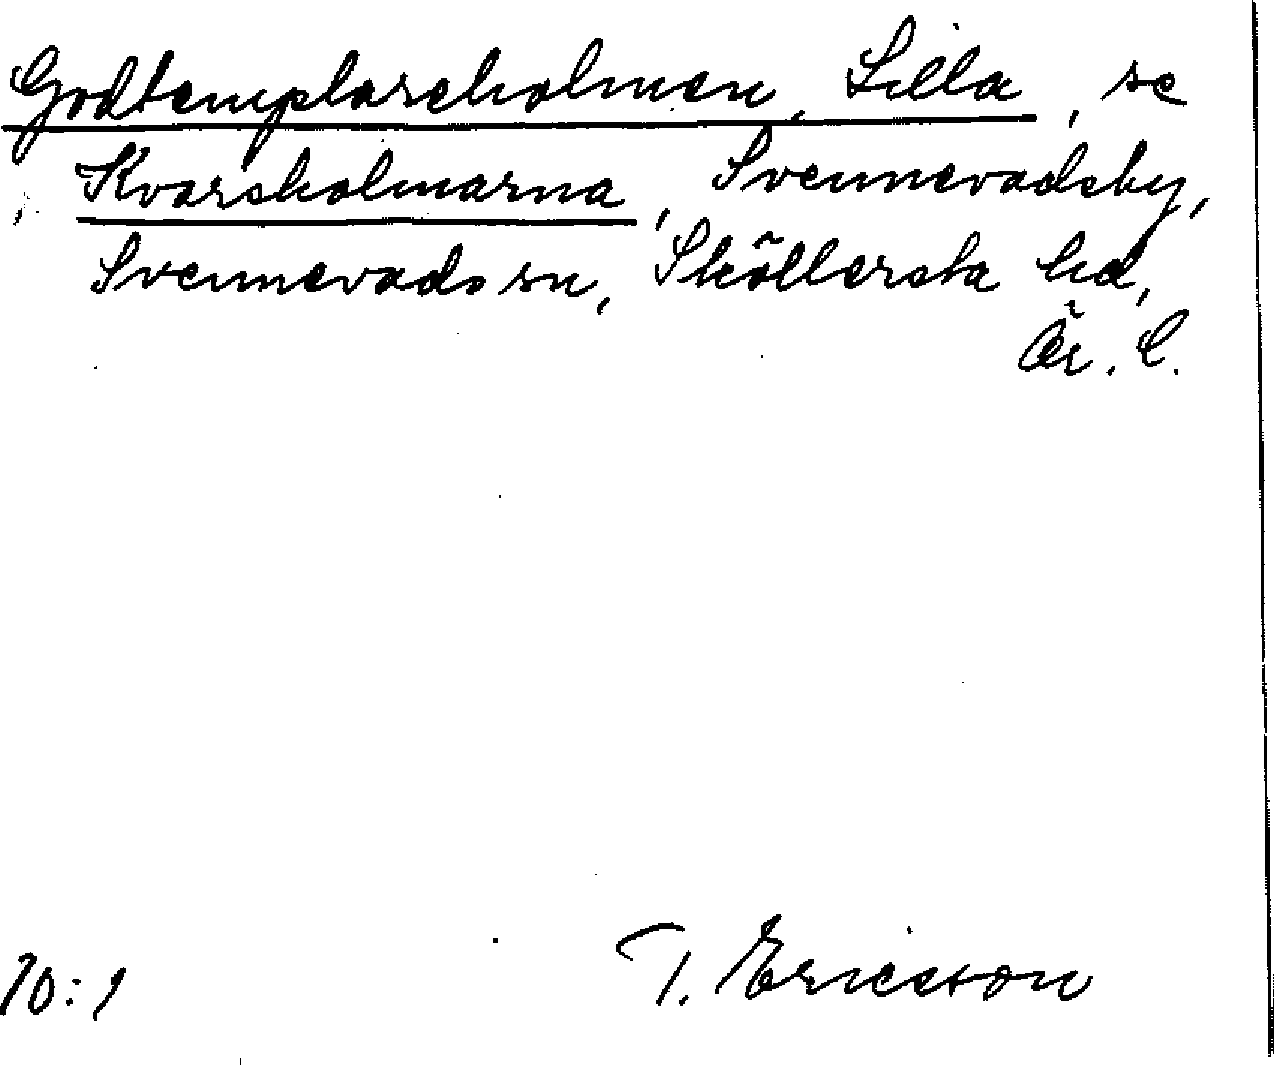 Godtemplareholmen, Lilla, se
Kvarsholmarna, Svennevadsby,
Svennevads sn, Sköllersta hd,
Ör. l.
70:1
T. Ericsson